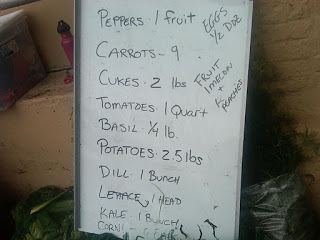 PEPPERS · 1 fruit
CARROTS - 9
CUKES · 2 lbs
TOMATOES · 1 QUART
BASIL · 1/4 lb.
POTATOES · 2.5 lbs
DILL 1 BUNCH
LETTUCE, 1 HEAD
KALE · 1 BUNCH
CORN
EGGS
1/2 DOZ
FRUIT
1 MELON
+
PEACHES